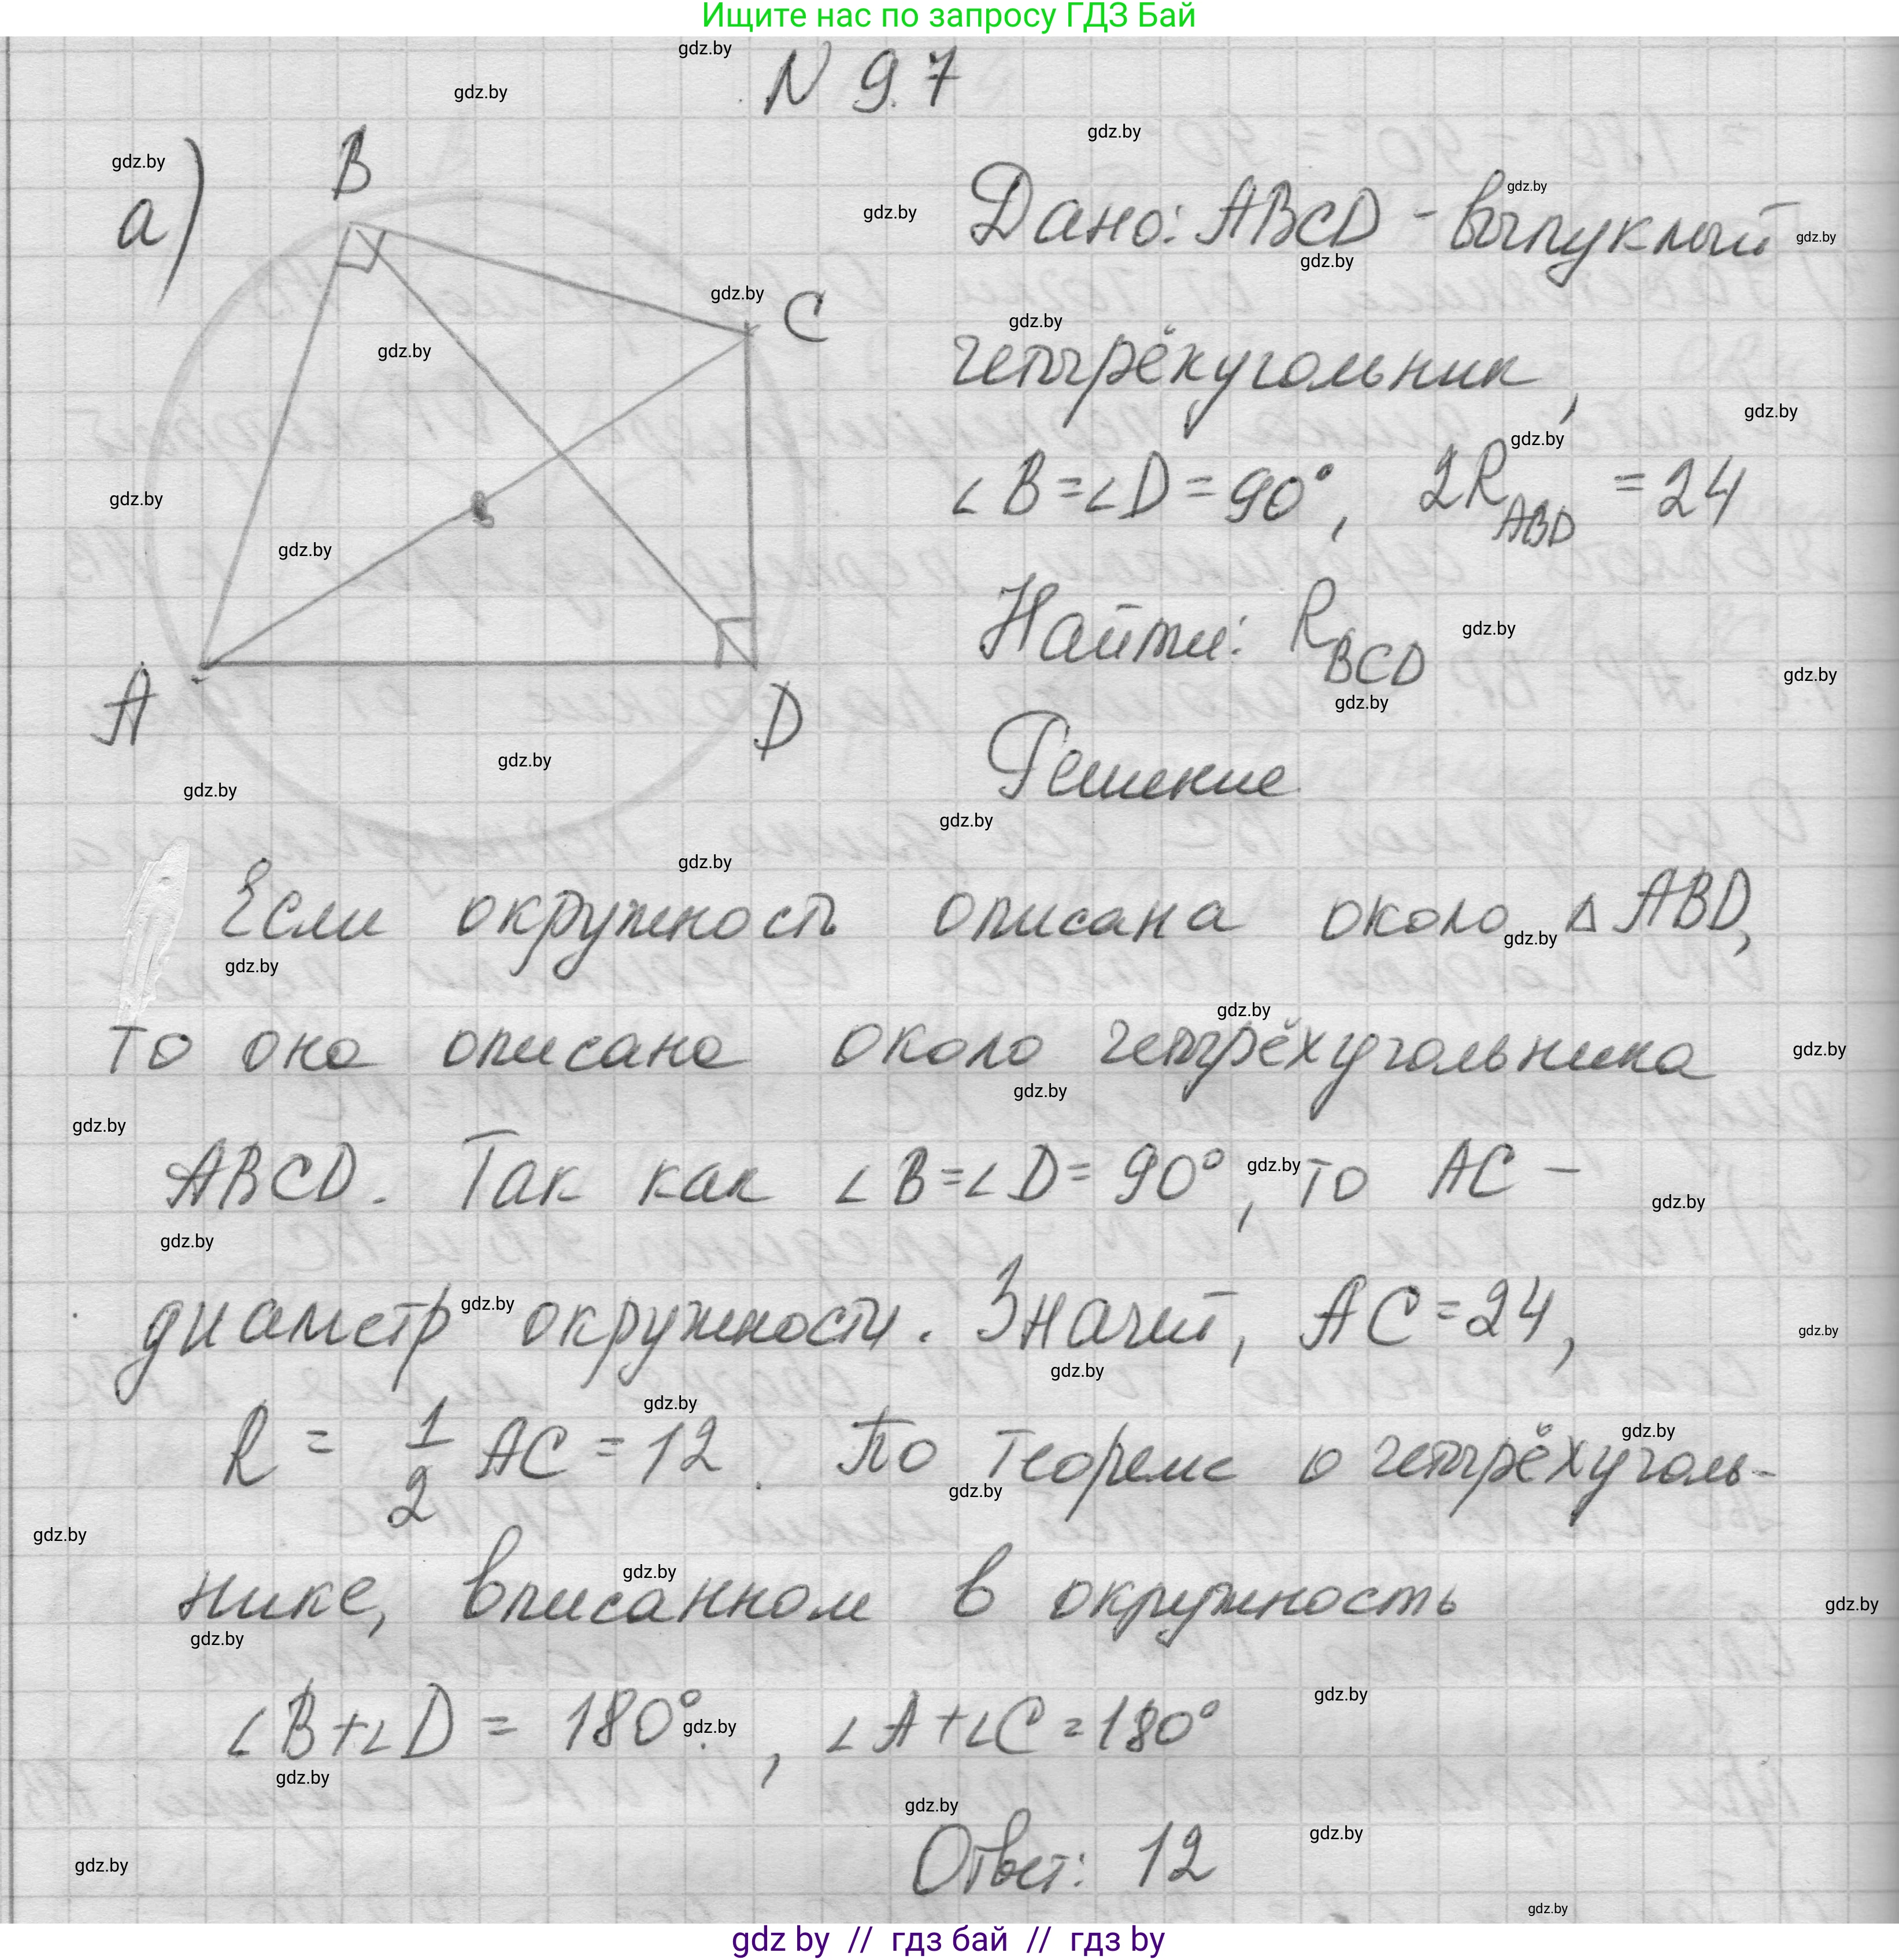 Ищите нас по запросу ГДЗ Бай
N 9.7
а)
B
C
A
D
Дано: ABCD - выпуклый
четырёхугольник,
∠B=∠D=90°, 2R_ABD = 24
Найти: R_BCD
Решение
Если окружность описана около △ABD,
то она описана около четырёхугольника
ABCD. Так как ∠B=∠D=90°, то AC -
диаметр окружности. Значит, AC=24,
R = 1/2 AC = 12. По теореме о четырёхуголь-
нике, вписанном в окружность
∠B+∠D = 180°, ∠A+∠C=180°
Ответ: 12
gdz.by
gdz by // гдз бай // гдз by